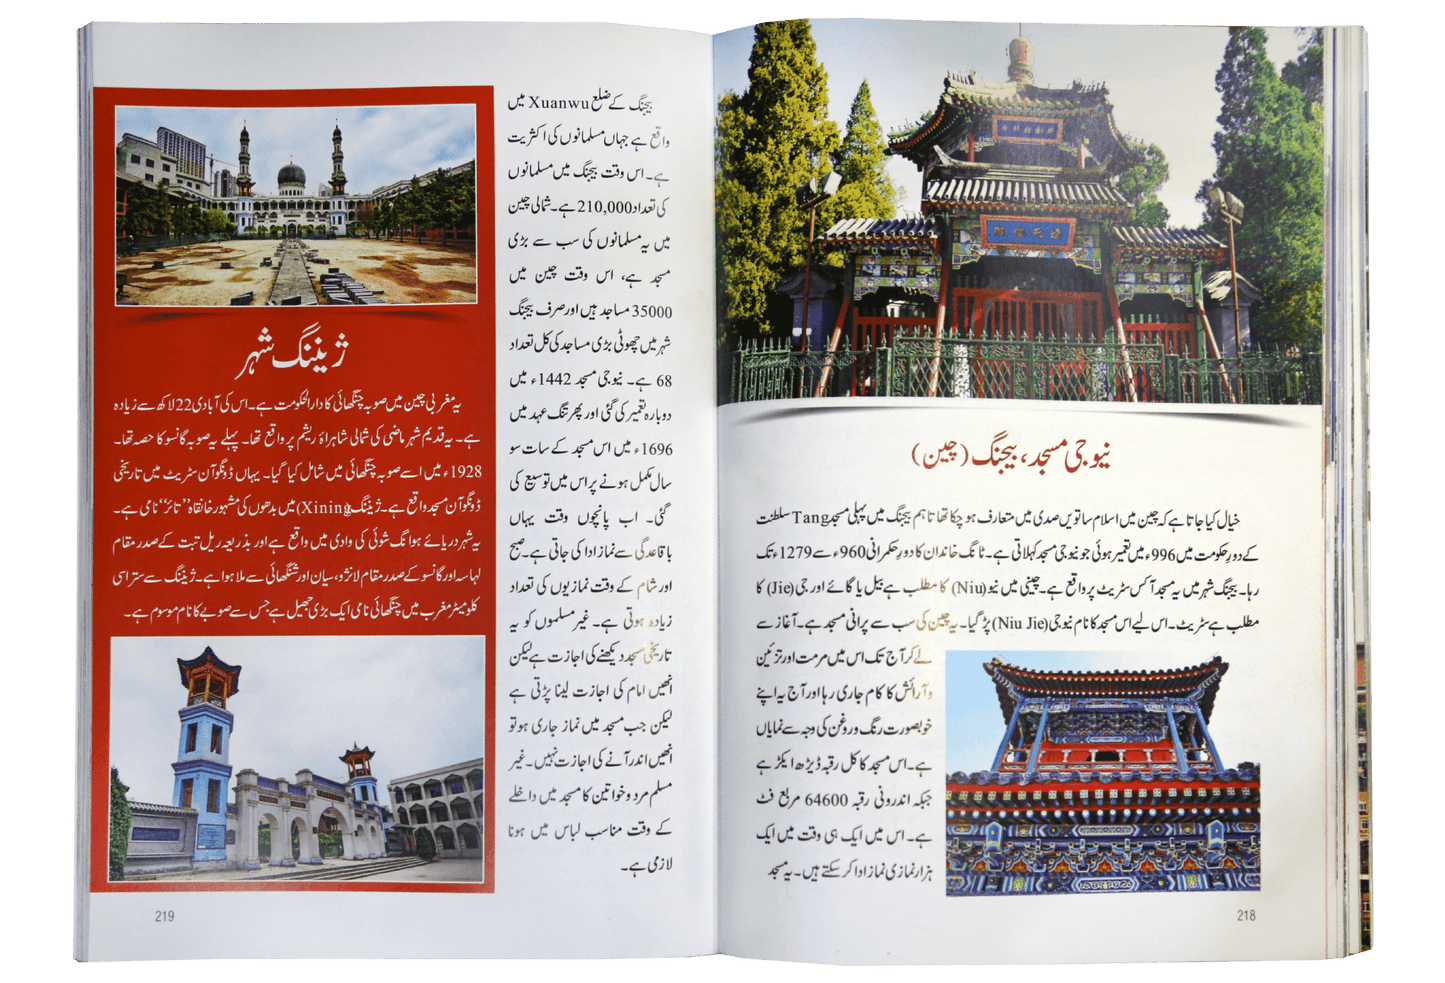 نیوجی مسجد، بیجنگ (چین)
خیال کیا جاتا ہے کہ چین میں اسلام ساتویں صدی میں متعارف ہو چکا تھا تاہم بیجنگ میں پہلی مسجد Tang سلطنت
کے دورِ حکومت میں 996ء میں تعمیر ہوئی جو نیوجی مسجد کہلاتی ہے۔ ٹانگ خاندان کا دورِ حکمرانی 960ء سے 1279ء تک
رہا۔ بیجنگ شہر میں یہ مسجد آکس سٹریٹ پر واقع ہے۔ چینی میں نیو (Niu) کا مطلب ہے بیل یا گائے اور جی (Jie) کا
مطلب ہے سٹریٹ۔ اس لیے اس مسجد کا نام نیوجی (Niu Jie) پڑ گیا۔ یہ چین کی سب سے پرانی مسجد ہے۔ آغاز سے
لے کر آج تک اس میں مرمت اور تزئین
و آرائش کا کام جاری رہا اور آج یہ اپنے
خوبصورت رنگ و روغن کی وجہ سے نمایاں
ہے۔ اس مسجد کا کل رقبہ ڈیڑھ ایکڑ ہے
جبکہ اندرونی رقبہ 64600 مربع فٹ
ہے۔ اس میں ایک ہی وقت میں ایک
ہزار نمازی نماز ادا کر سکتے ہیں۔ یہ مسجد
218
بیجنگ کے ضلع Xuanwu میں
واقع ہے جہاں مسلمانوں کی اکثریت
ہے۔ اس وقت بیجنگ میں مسلمانوں
کی تعداد 210,000 ہے۔ شمالی چین
میں یہ مسلمانوں کی سب سے بڑی
مسجد ہے، اس وقت چین میں
35000 مساجد ہیں اور صرف بیجنگ
شہر میں چھوٹی بڑی مساجد کی کل تعداد
68 ہے۔ نیوجی مسجد 1442ء میں
دوبارہ تعمیر کی گئی اور پھر تنگ عہد میں
1696ء میں اس مسجد کے سات سو
سال مکمل ہونے پر اس میں توسیع کی
گئی۔ اب پانچوں وقت یہاں
باقاعدگی سے نماز ادا کی جاتی ہے۔ صبح
اور شام کے وقت نمازیوں کی تعداد
زیادہ ہوتی ہے۔ غیر مسلموں کو یہ
تاریخی مسجد دیکھنے کی اجازت ہے لیکن
انھیں امام کی اجازت لینا پڑتی ہے
لیکن جب مسجد میں نماز جاری ہو تو
انھیں اندر آنے کی اجازت نہیں۔ غیر
مسلم مرد و خواتین کا مسجد میں داخلے
کے وقت مناسب لباس میں ہونا
لازمی ہے۔
ژیننگ شہر
یہ مغربی چین میں صوبہ چنگھائی کا دارالحکومت ہے۔ اس کی آبادی 22 لاکھ سے زیادہ
ہے۔ یہ قدیم شہر ماضی کی شمالی شاہراہ ریشم پر واقع تھا۔ پہلے یہ صوبہ گانسو کا حصہ تھا۔
1928ء میں اسے صوبہ چنگھائی میں شامل کیا گیا۔ یہاں ڈونگوآن سٹریٹ میں تاریخی
ڈونگوآن مسجد واقع ہے۔ ژیننگ (Xining) میں بدھوں کی مشہور خانقاہ ”تائر“ نامی ہے۔
یہ شہر دریائے ہوانگ شوئی کی وادی میں واقع ہے اور بذریعہ ریل تبت کے صدر مقام
لہاسہ اور گانسو کے صدر مقام لانژو، سیان اور شنگھائی سے ملا ہوا ہے۔ ژیننگ سے ستر اسی
کلومیٹر مغرب میں چنگھائی نامی ایک بڑی جھیل ہے جس سے صوبے کا نام موسوم ہے۔
219